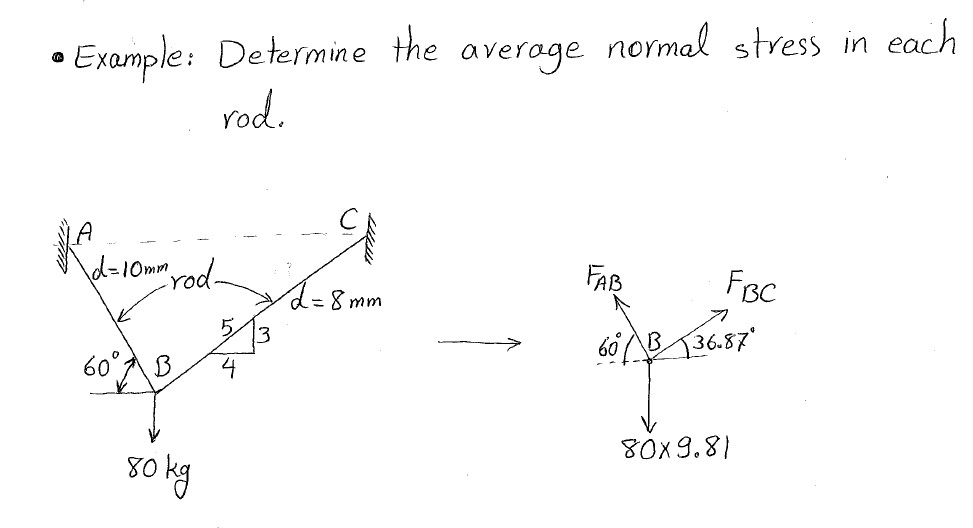 • Example: Determine the average normal stress in each
rod.
A
C
d=10mm
rod
d=8mm
5
3
4
60°
B
80 kg
F_AB
F_BC
60°
B
36.87°
80×9.81